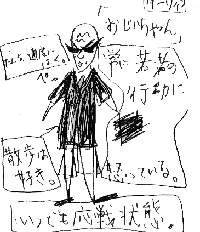 「おじいちゃん」
常に若者の
行動に
怒っている。
散歩は
好き。
いつでも応戦状態。